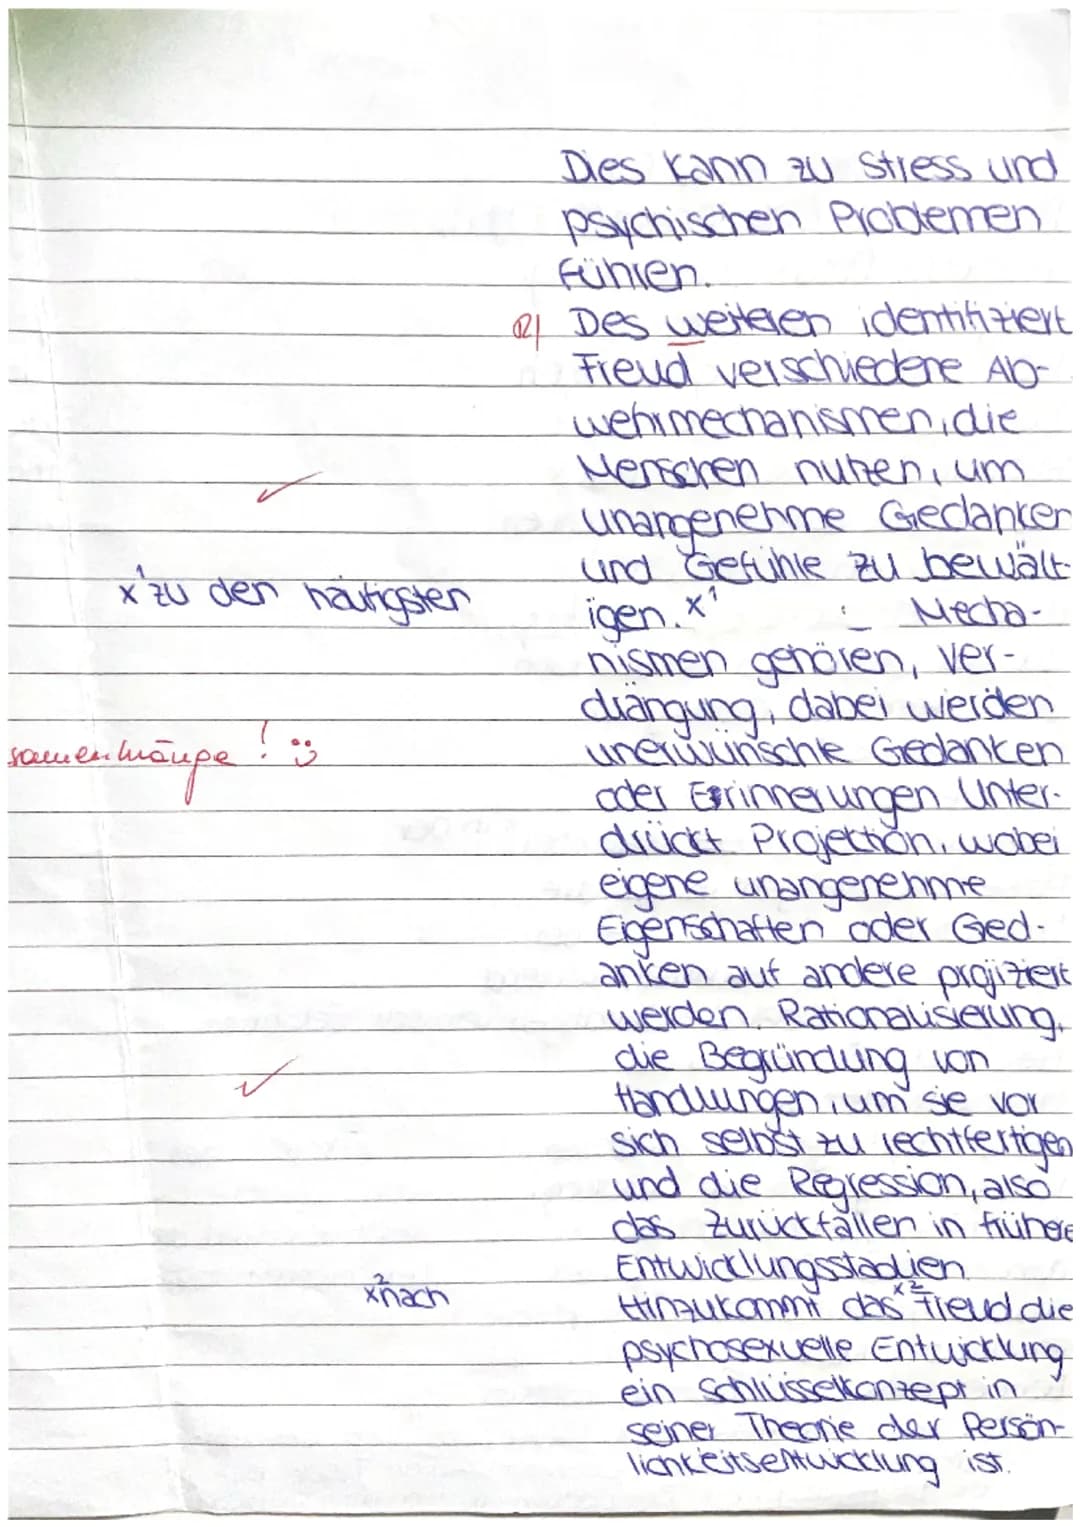 Dies kann zu Stress und
psychischen Problemen
führen.
R| Des weiteren identifiziert
Freud verschiedene Ab-
wehrmechanismen, die
Menschen nutzen, um
unangenehme Gedanken
und Gefühle zu bewält-
x¹ zu den häufigsten
igen. x¹ Mecha-
nismen gehören, Ver-
drängung, dabei werden
samenhänge! :)
unerwünschte Gedanken
oder Erinnerungen Unter-
drückt Projektion, wobei
eigene unangenehme
Eigenschaften oder Ged-
anken auf andere projiziert
werden. Rationalisierung,
die Begründung von
Handlungen, um sie vor
sich selbst zu rechtfertigen
und die Regression, also
das Zurückfallen in frühere
Entwicklungsstadien.
x² nach
Hinzukommt das x² Freud die
psychosexuelle Entwicklung
ein Schlüsselkonzept in
seiner Theorie der Persön-
lichkeitsentwicklung ist.